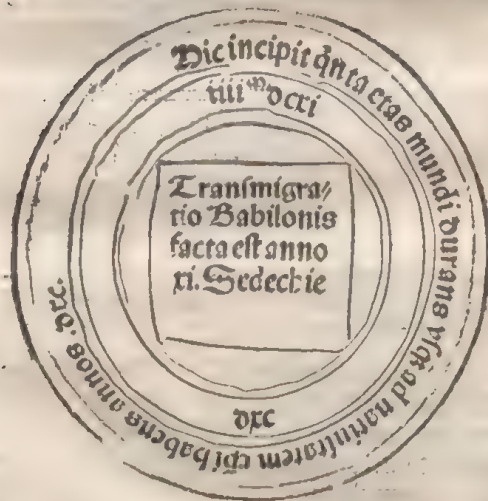 Hic incipit q̃nta etas mundi durans vsq̃ ad natiuitatem xp̃i habens annos .dxc.
iiiiᵐ dcxi
Transmigra⸗
tio Babilonis
facta est anno
xi. Sedechie
dxc